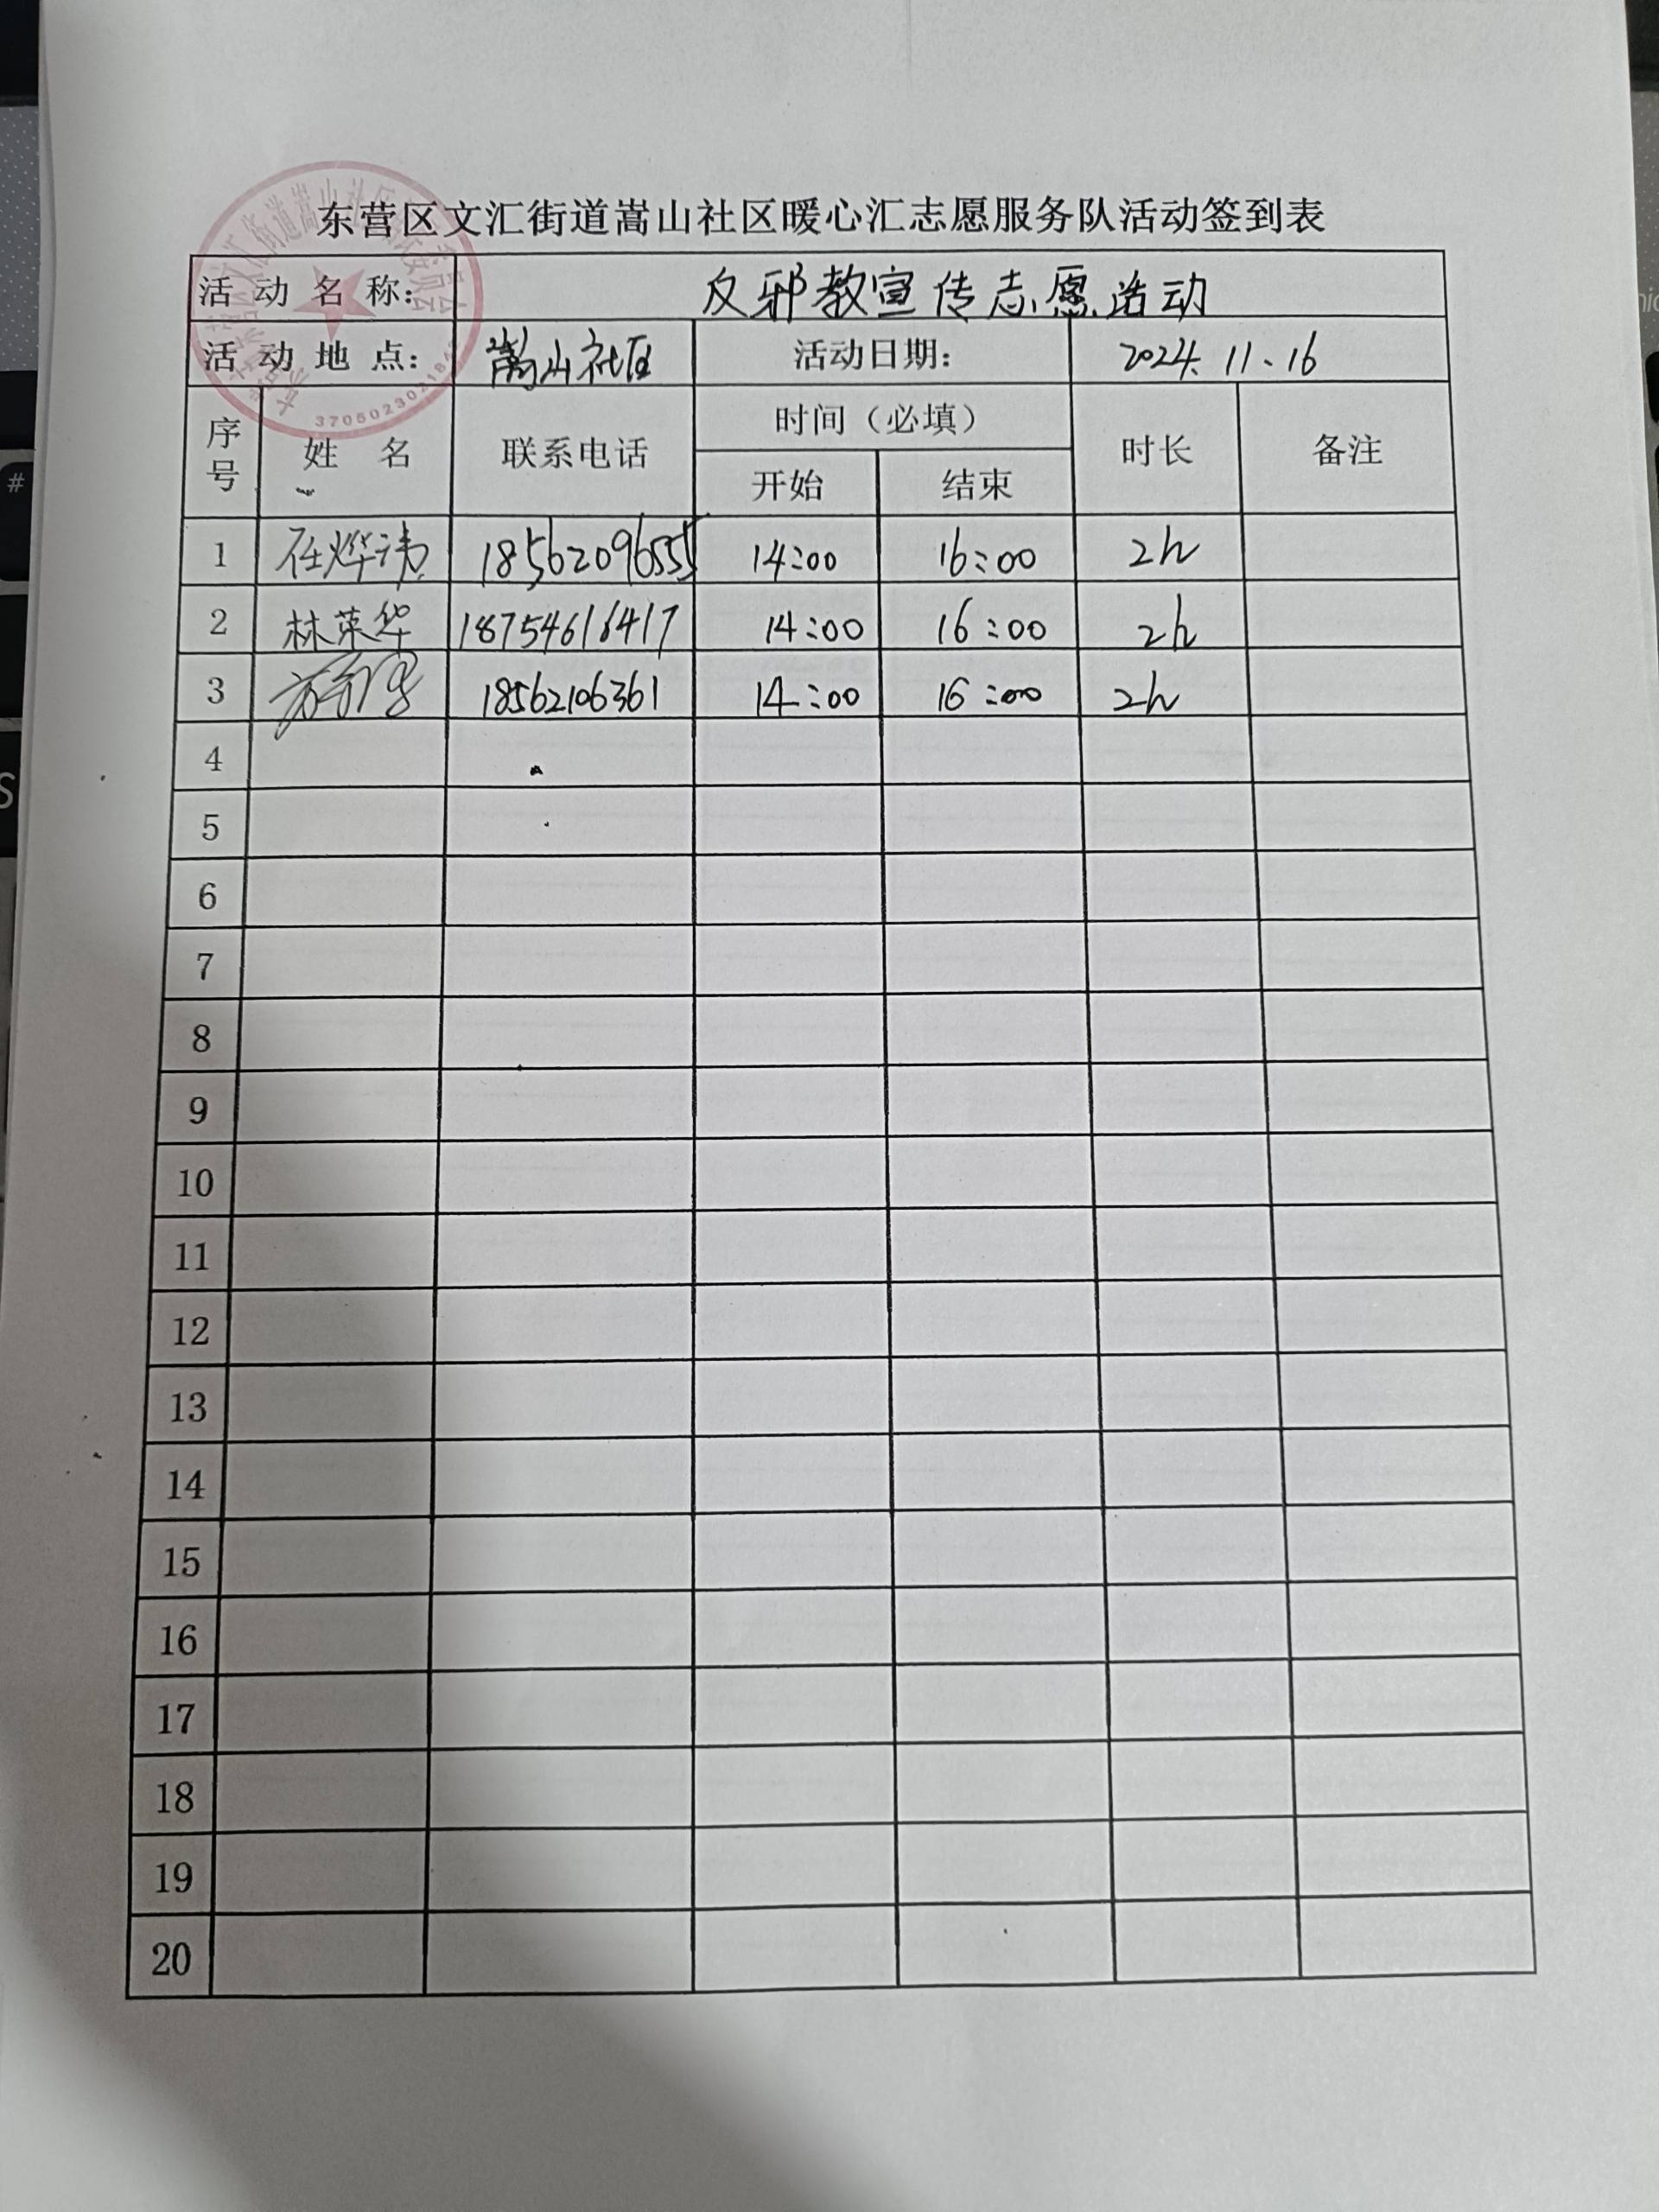 东营区文汇街道嵩山社区暖心汇志愿服务队活动签到表
活动名称： 反邪教宣传志愿活动
活动地点： 嵩山社区 活动日期： 2024.11.16
序号 姓名 联系电话 时间（必填） 时长 备注
开始 结束
1 任烨沩 18562096555 14:00 16:00 2h
2 林荣华 18754616417 14:00 16:00 2h
3 18562106361 14:00 16:00 2h
4
5
6
7
8
9
10
11
12
13
14
15
16
17
18
19
20